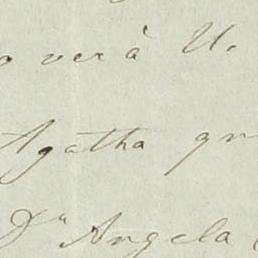 verà V.
Agatha
Dª Angela